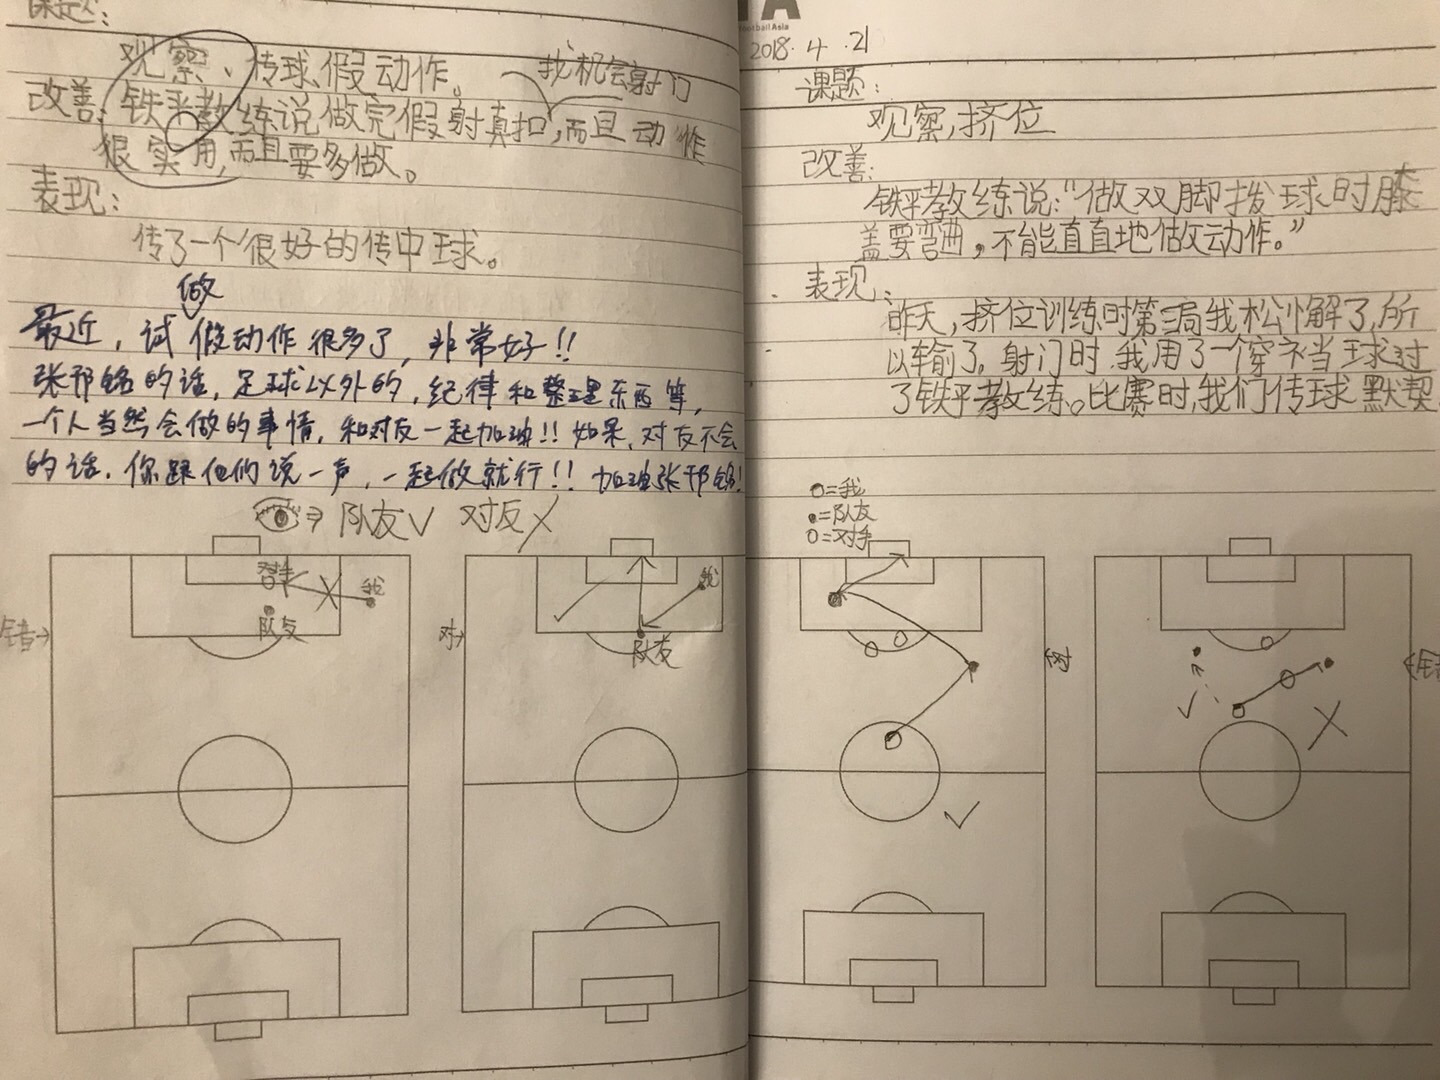 课题:
观察、传球、假动作。
找机会射门
改善:铁平教练说做完假射真扣,而且动作
很实用,而且要多做。
表现:
传了一个很好的传中球。
做
最近,试假动作很多了,非常好!!
张邗铭的话,足球以外的,纪律和整理东西等,
一个人当然会做的事情,和对友一起加油!!如果,对友不会
的话,你跟他们说一声,一起做就行!!加油张邗铭!
⇒队友√ 对反X
我
队友
错音→
对→
我
队友
ootball Asia
2018.4.21
课题:
观察,挤位
改善:
铁平教练说:“做双脚拨球时膝
盖要弯曲,不能直直地做动作。”
表现:
昨天,挤位训练时第三局我松懈了,所
以输了,射门时我用了一个穿裆球过
了铁平教练。比赛时,我们传球默契
o=我
●=队友
o=对手